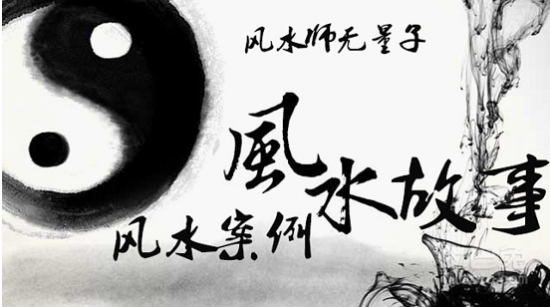 风水师无量子
風水故事
风水案例